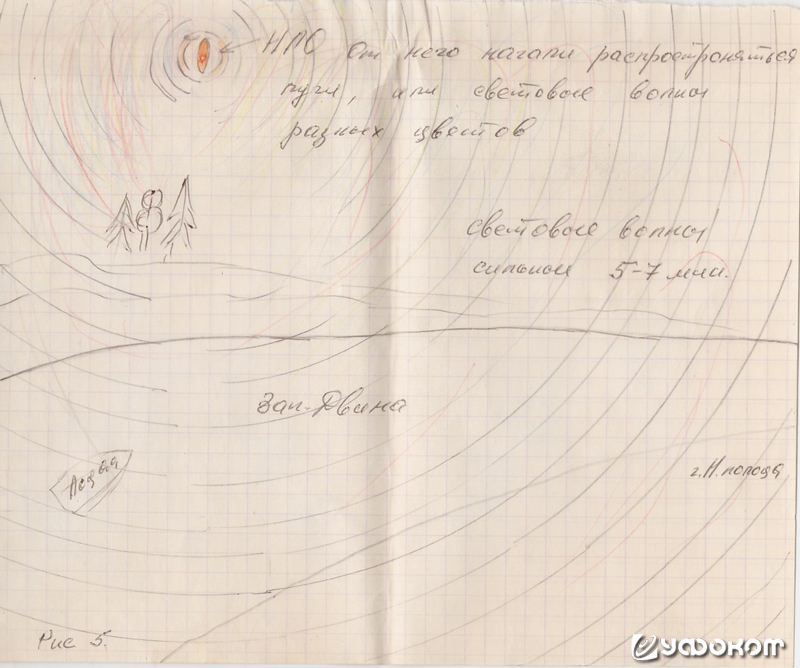 НЛО От него начали распространяться
лучи, или световые волны
разных цветов
световые волны
сильные 5-7 мин.
Зап. Двина
Лодка
г. Н. полоцк
Рис 5.
УФОКОМ